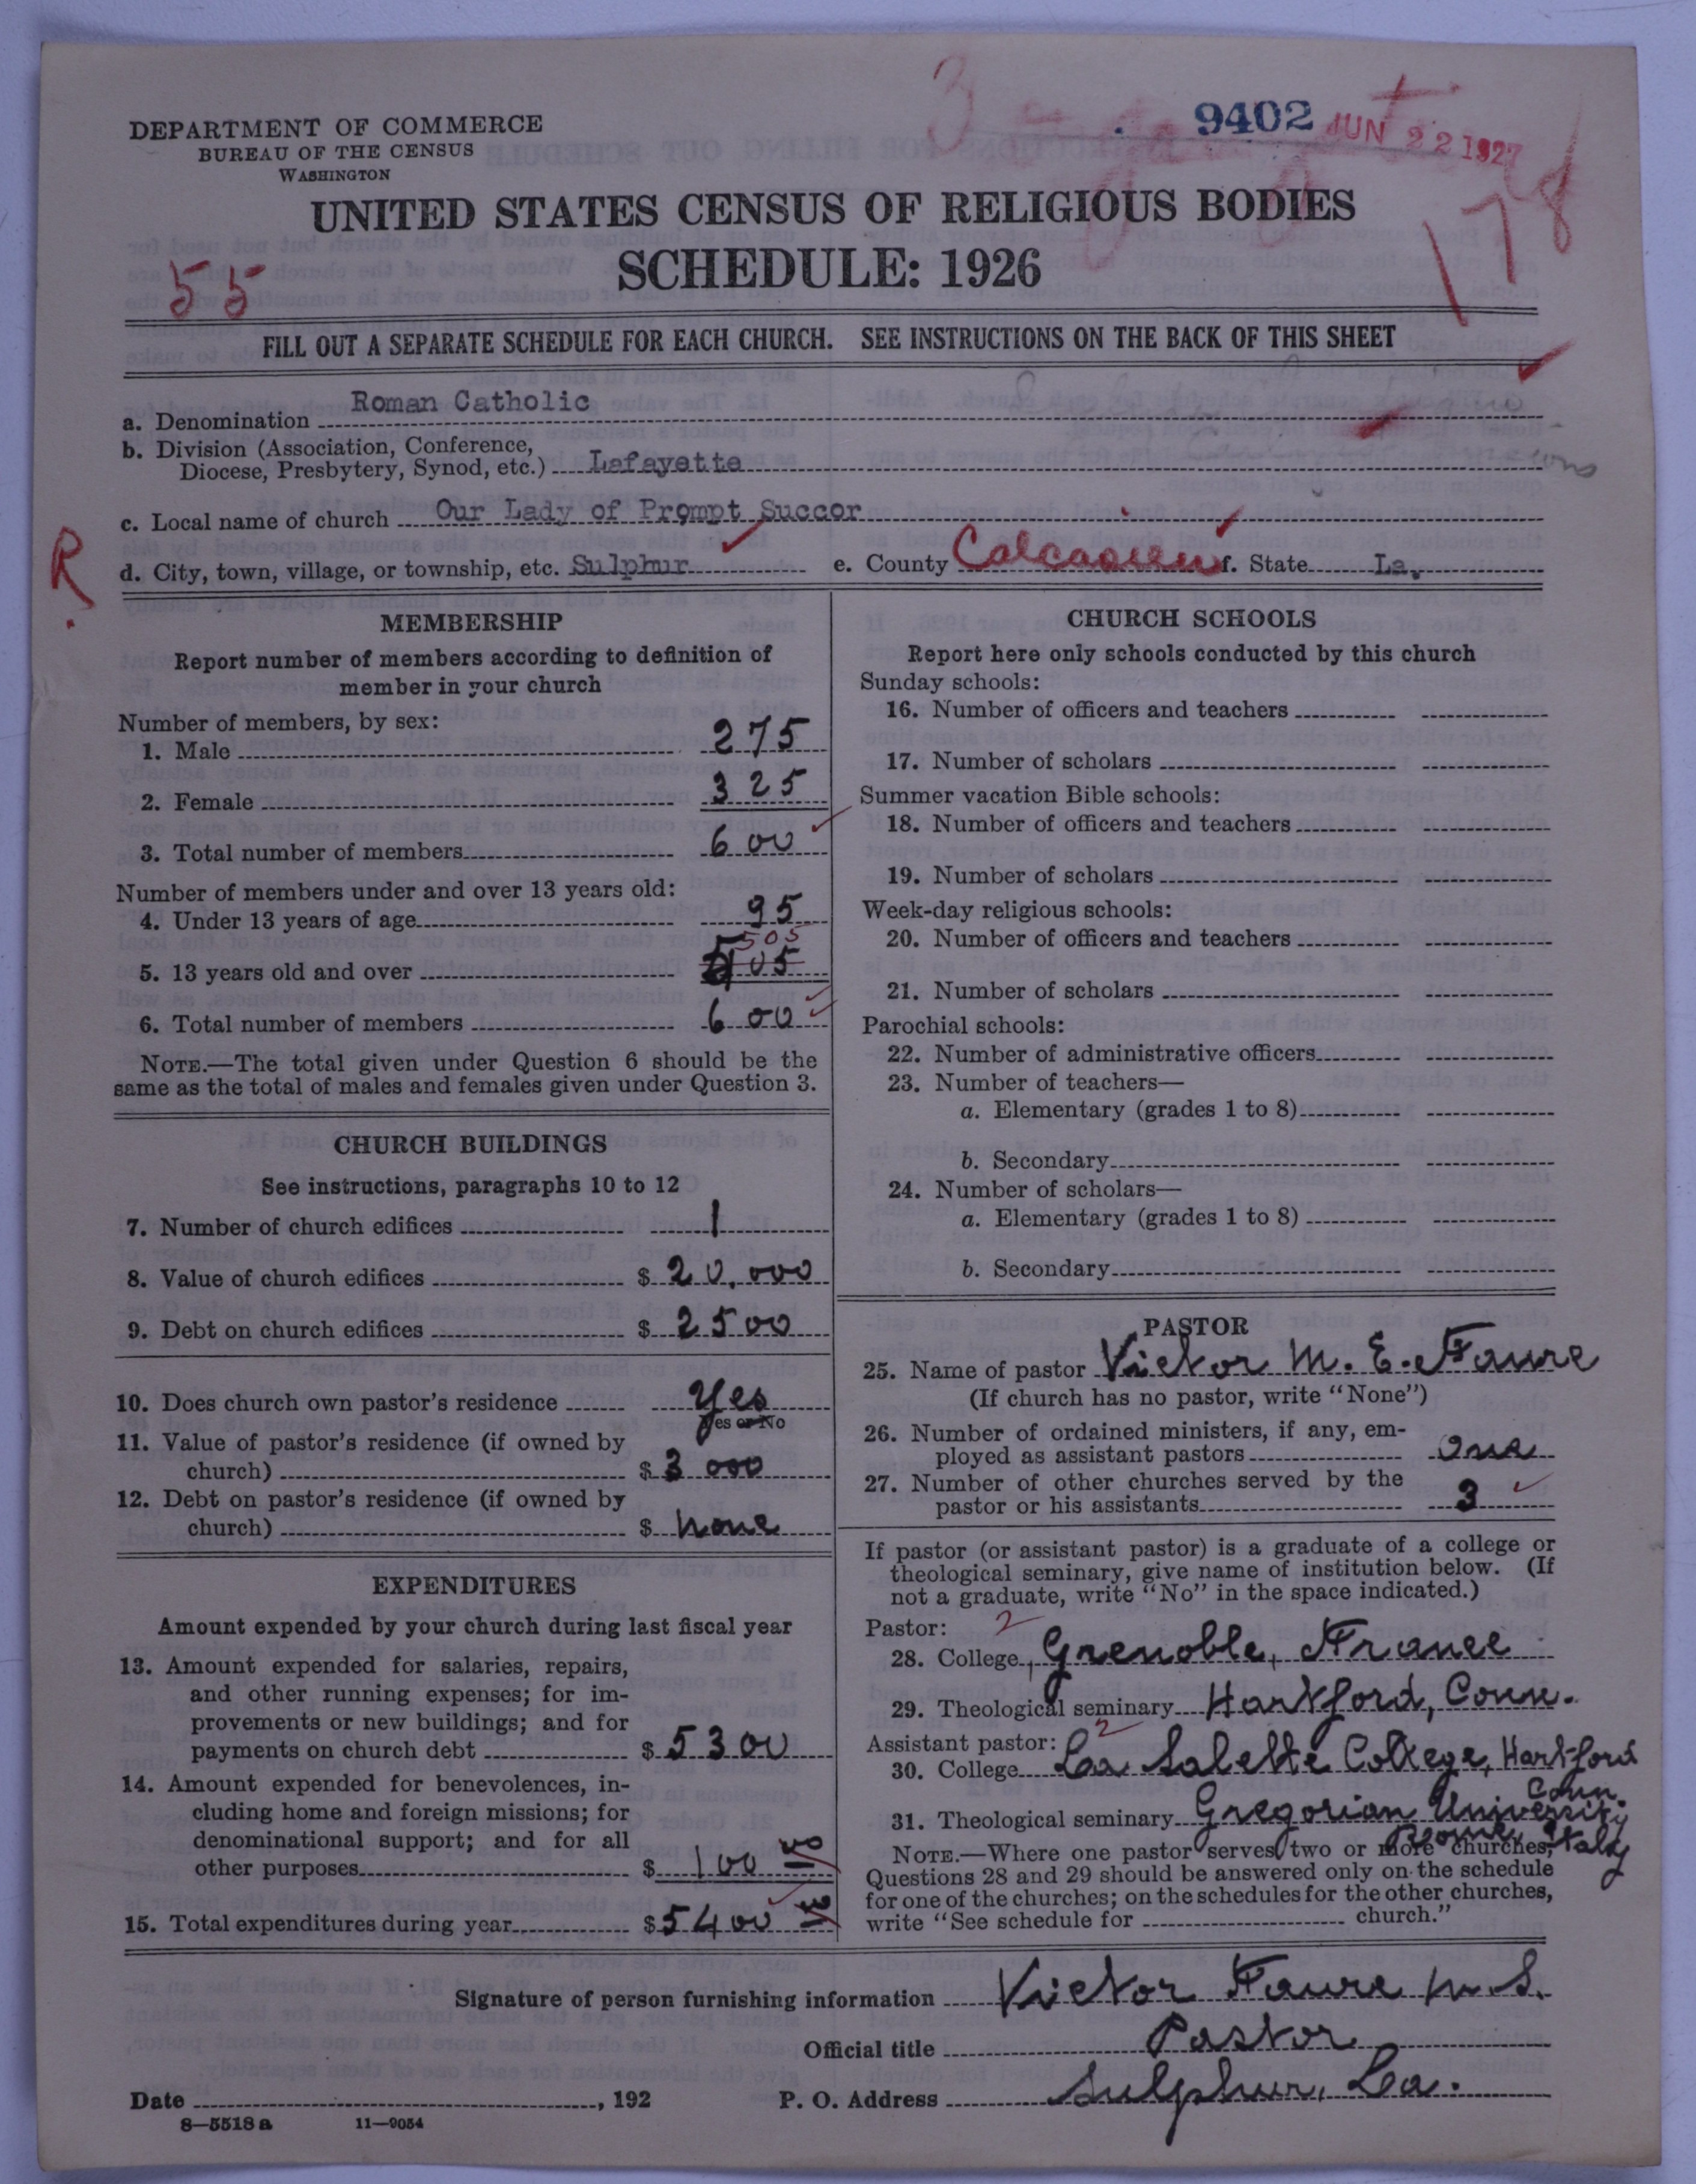 DEPARTMENT OF COMMERCE
BUREAU OF THE CENSUS
WASHINGTON
3
9402
JUN 22 1927
178
UNITED STATES CENSUS OF RELIGIOUS BODIES
SCHEDULE: 1926
55
FILL OUT A SEPARATE SCHEDULE FOR EACH CHURCH. SEE INSTRUCTIONS ON THE BACK OF THIS SHEET
a. Denomination Roman Catholic
b. Division (Association, Conference,
Diocese, Presbytery, Synod, etc.) Lafayette
c. Local name of church Our Lady of Prompt Succor
R.
d. City, town, village, or township, etc. Sulphur e. County Calcasieu f. State La.
MEMBERSHIP
Report number of members according to definition of
member in your church
Number of members, by sex:
1. Male 275
2. Female 325
3. Total number of members 600
Number of members under and over 13 years old:
4. Under 13 years of age 95
505
5. 13 years old and over 505
6. Total number of members 600
NOTE.—The total given under Question 6 should be the
same as the total of males and females given under Question 3.
CHURCH BUILDINGS
See instructions, paragraphs 10 to 12
7. Number of church edifices 1
8. Value of church edifices $ 20,000
9. Debt on church edifices $ 2500
10. Does church own pastor's residence Yes
Yes or No
11. Value of pastor's residence (if owned by
church) $ 3000
12. Debt on pastor's residence (if owned by
church) $ None
EXPENDITURES
Amount expended by your church during last fiscal year
13. Amount expended for salaries, repairs,
and other running expenses; for im-
provements or new buildings; and for
payments on church debt $ 5300
14. Amount expended for benevolences, in-
cluding home and foreign missions; for
denominational support; and for all
other purposes $ 100
15. Total expenditures during year $ 5400
CHURCH SCHOOLS
Report here only schools conducted by this church
Sunday schools:
16. Number of officers and teachers
17. Number of scholars
Summer vacation Bible schools:
18. Number of officers and teachers
19. Number of scholars
Week-day religious schools:
20. Number of officers and teachers
21. Number of scholars
Parochial schools:
22. Number of administrative officers
23. Number of teachers—
a. Elementary (grades 1 to 8)
b. Secondary
24. Number of scholars—
a. Elementary (grades 1 to 8)
b. Secondary
PASTOR
25. Name of pastor Victor M. E. Faure
(If church has no pastor, write "None")
26. Number of ordained ministers, if any, em-
ployed as assistant pastors one
27. Number of other churches served by the
pastor or his assistants 3
If pastor (or assistant pastor) is a graduate of a college or
theological seminary, give name of institution below. (If
not a graduate, write "No" in the space indicated.)
Pastor: 2
28. College Grenoble, France
29. Theological seminary Hartford, Conn.
Assistant pastor: 2
30. College La Salette College, Hartford
Conn.
31. Theological seminary Gregorian University
Rome, Italy
NOTE.—Where one pastor serves two or more churches,
Questions 28 and 29 should be answered only on the schedule
for one of the churches; on the schedules for the other churches,
write "See schedule for church."
Signature of person furnishing information Victor Faure M.S.
Official title Pastor
Date , 192 P. O. Address Sulphur, La.
8—5518 a 11—9054